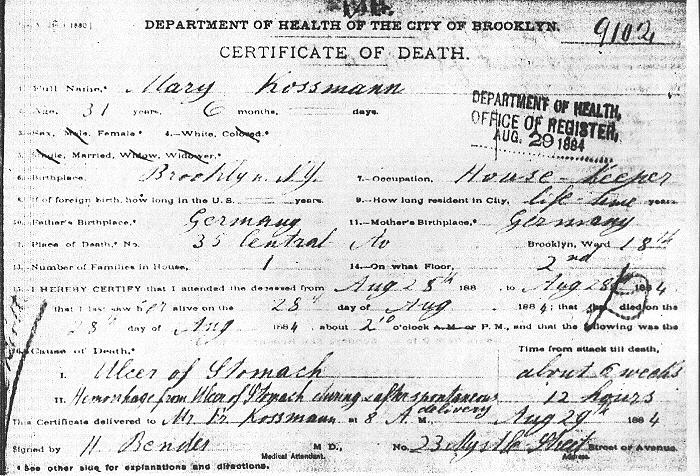 DEPARTMENT OF HEALTH OF THE CITY OF BROOKLYN.
9102
CERTIFICATE OF DEATH.
1. Full Name,* Mary Kossmann
2. Age, 31 years, 6 months, days.
DEPARTMENT OF HEALTH,
OFFICE OF REGISTER,
AUG. 29 1884
3. Sex, Male, Female.* 4.—White, Colored.*
5. Single, Married, Widow, Widower.*
6. Birthplace, Brooklyn N.Y. 7.—Occupation, House-Keeper
8. If of foreign birth, how long in the U.S. years. 9.—How long resident in City, life-time years
10. Father's Birthplace, Germany 11.—Mother's Birthplace, Germany
12. Place of Death,* No. 35 Central Av Brooklyn, Ward 18th
13. Number of Families in House, 1 14.—On what Floor, 2nd
15. I HEREBY CERTIFY that I attended the deceased from Aug 28th 188 to Aug 28th 1884
that I last saw her alive on the 28th day of Aug 1884; that she died on the
28th day of Aug 1884, about 2 o'clock A. M. or P. M., and that the following was the
16. Cause of Death.* Time from attack till death,
I. Ulcer of Stomach about 6 weeks
II. Hemorrhage from Ulcer of Stomach during & after spontaneous delivery 12 hours
This Certificate delivered to Mr Fr Kossmann at 8 A. M. Aug 29th 1884
Signed by H. Bender M. D., No. 23 Myrtle Street Street or Avenue.
Medical Attendant. Address.
* See other side for explanations and directions.